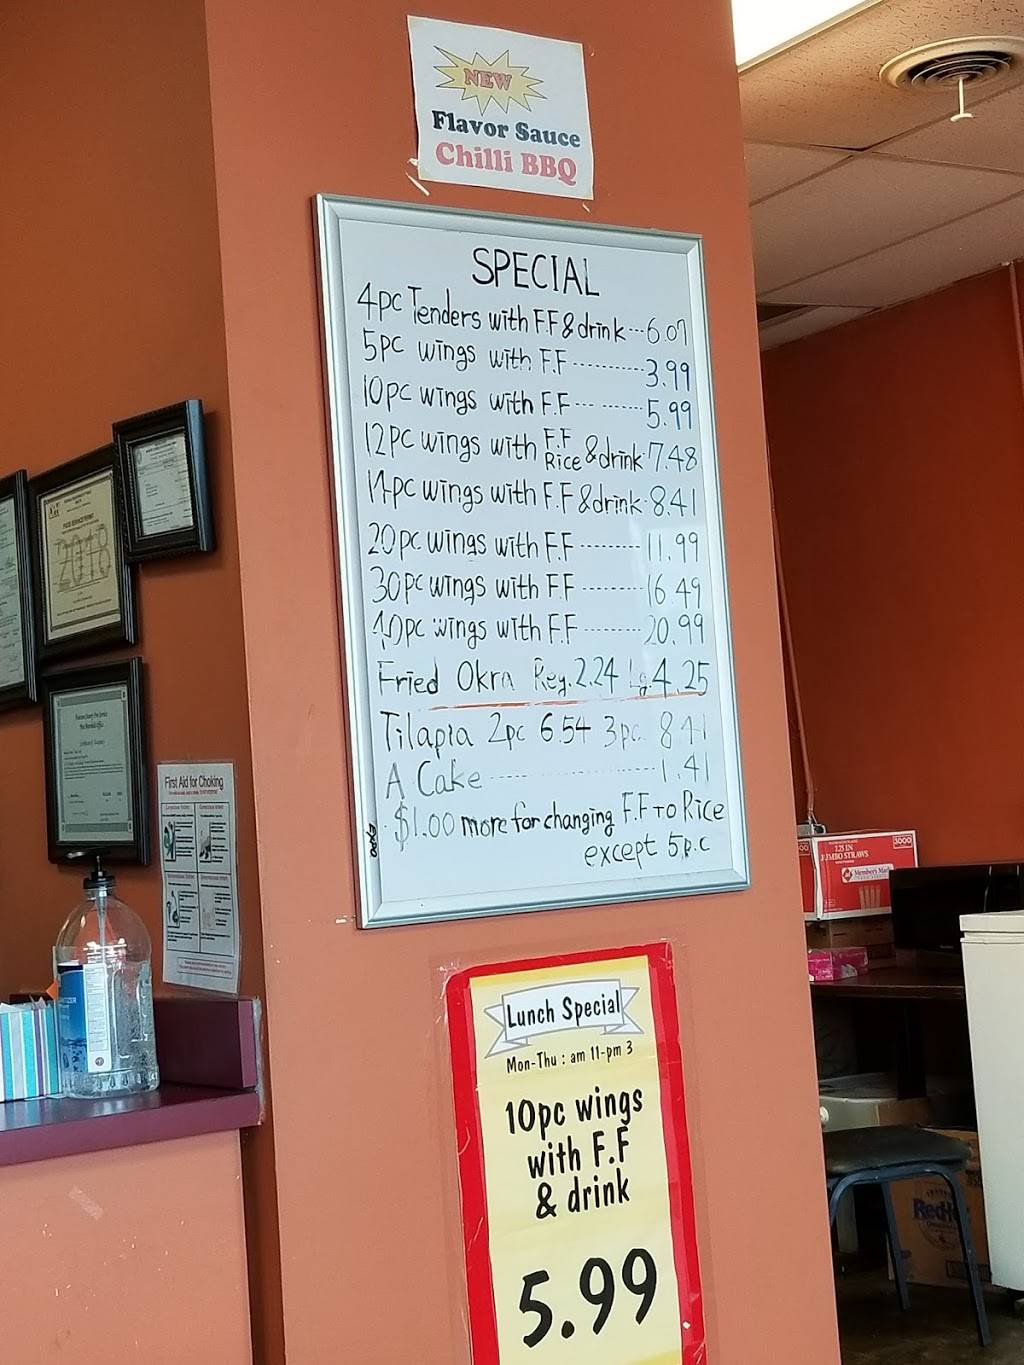 NEW
Flavor Sauce
Chilli BBQ
SPECIAL
4pc Tenders with F.F & drink---6.07
5pc wings with F.F----------3.99
10pc wings with F.F--- ------5.99
12pc wings with F.F Rice & drink-7.48
14pc wings with F.F & drink-8.41
20pc wings with F.F --------11.99
30pc wings with F.F --------16 49
40pc wings with F.F --------20.99
Fried Okra Reg.2.24 Lg.4.25
Tilapia 2pc 6.54 3pc. 8 41
A Cake------------------1.41
$1.00 more for changing F.F To Rice
except 5p.c
EXPO
First Aid for Choking
2018
Lunch Special
Mon-Thu : am 11-pm 3
10pc wings
with F.F
& drink
5.99
3000
JUMBO STRAWS
Member's Mark